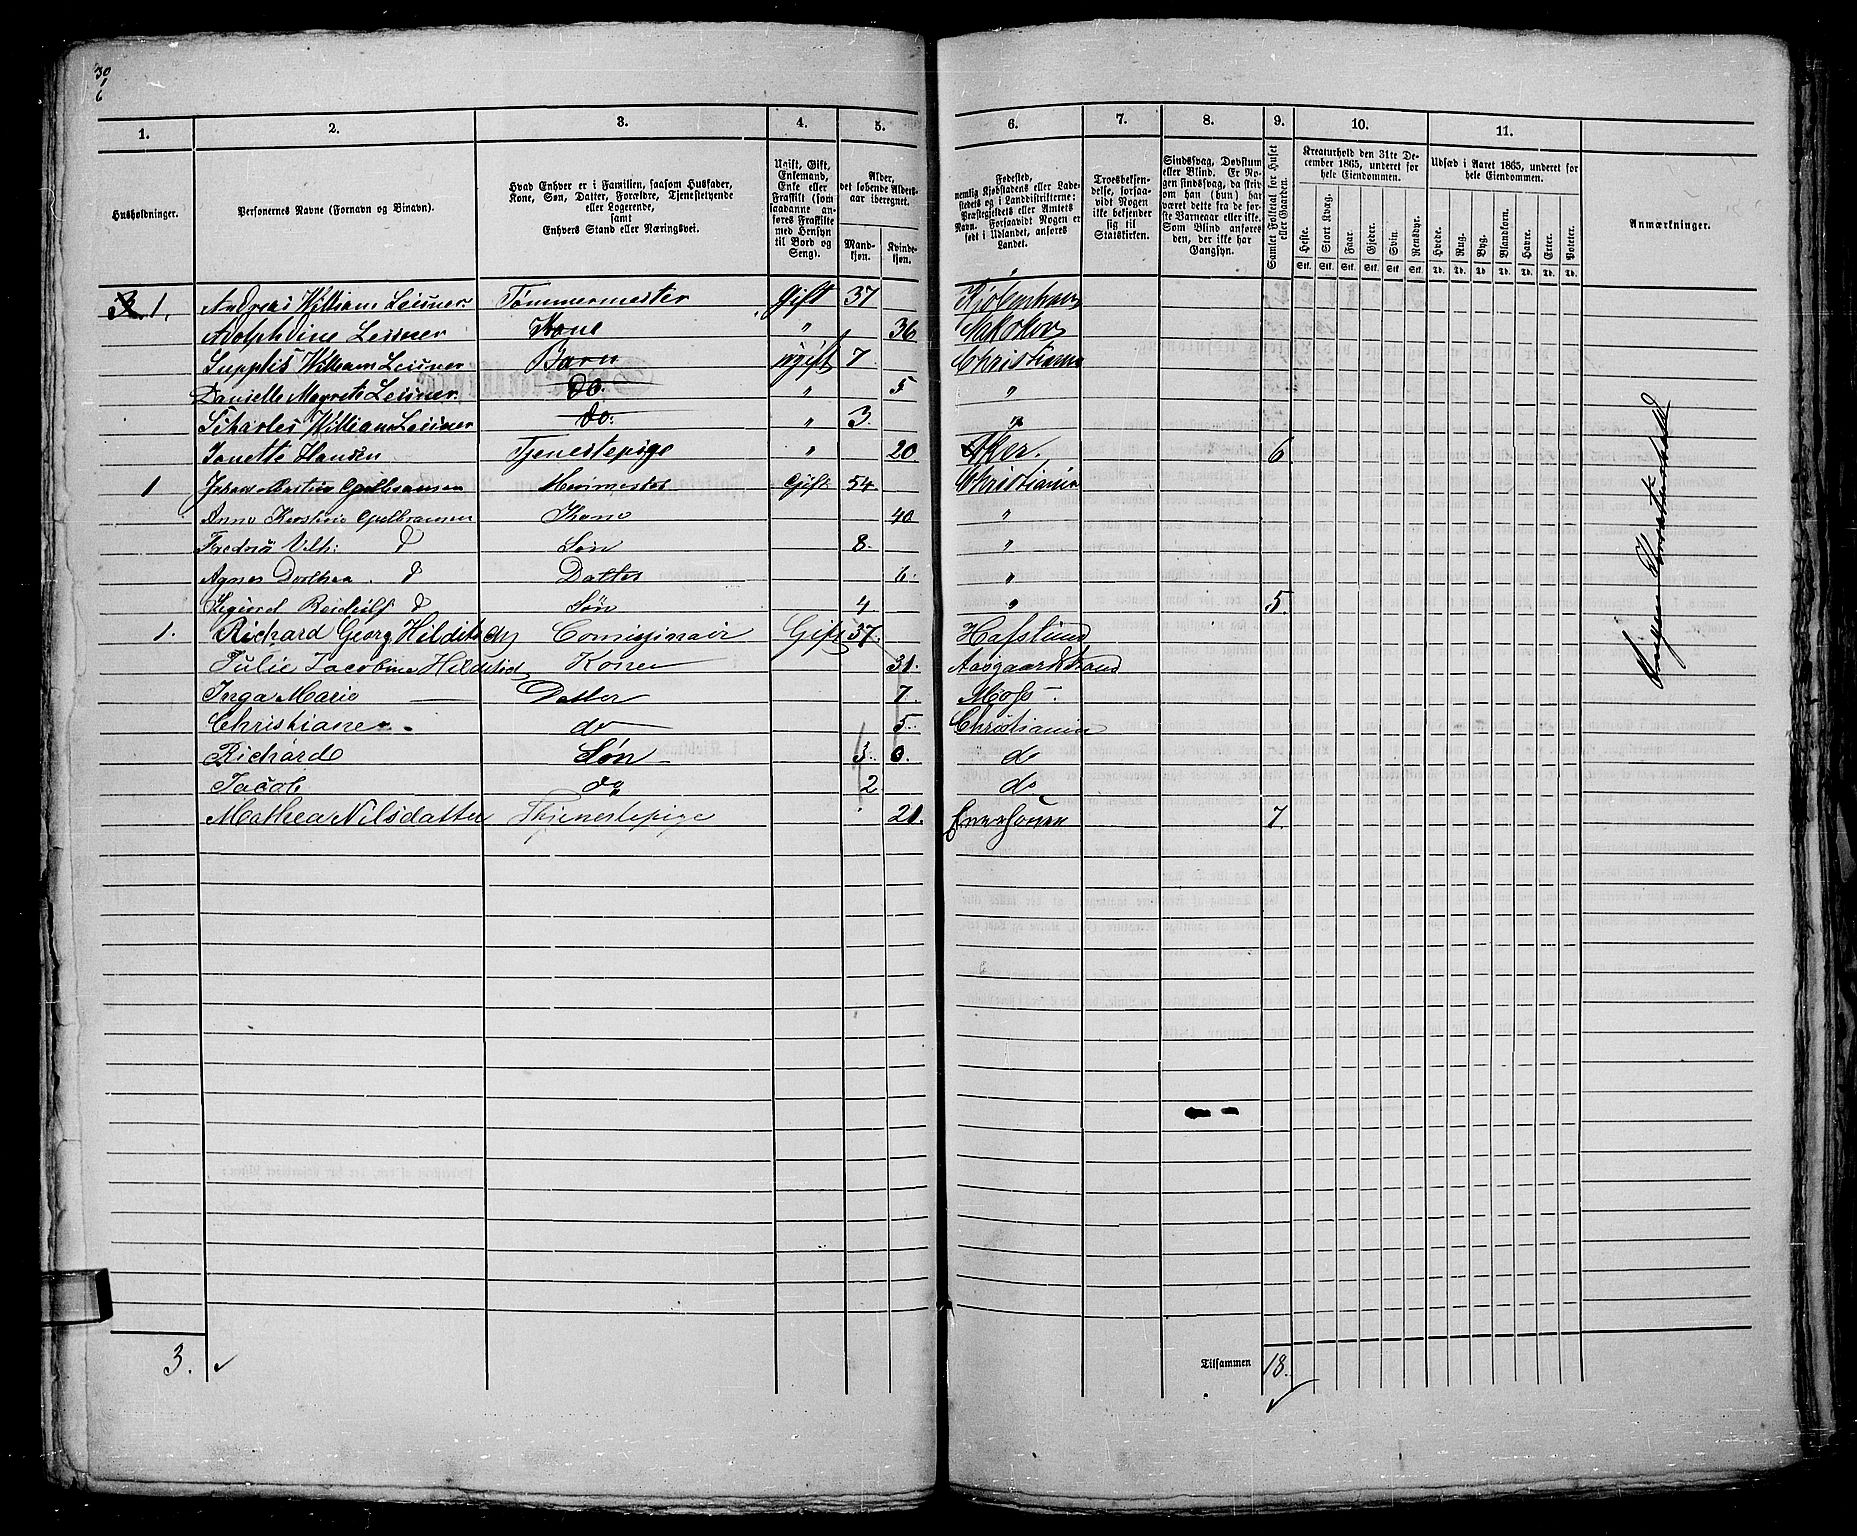 30
6
1.
2.
3.
4.
5.
6.
7.
8.
9.
10.
11.
Husholdninger.
Personernes Navne (Fornavn og Binavn).
Hvad Enhver er i Familien, saasom Husfader, Kone, Søn, Datter, Forældre, Tjenestetyende eller Logerende, samt Enhvers Stand eller Næringsvei.
Ugift, Gift, Enkemand, Enke eller Fraskilt (som saadanne anføres Fraskilte med Hensyn til Bord og Seng).
Alder, det løbende Aldersaar iberegnet.
Mandkjøn.
Kvindekjøn.
Fødested, nemlig Kjøbstadens eller Ladestedets og i Landdistrikterne: Præstegjeldets eller Amtets Navn. Forsaavidt Nogen er født i Udlandet, anføres Landet.
Troesbekjendelse, forsaavidt Nogen ikke bekjender sig til Statskirken.
Sindssvag, Døvstum eller Blind. Er Nogen sindssvag, da skriv om han (hun) har været dette fra de første Barneaar eller ikke. Som Blind anføres den, der ikke har Gangsyn.
Samlet Folketal for Huset eller Gaarden.
Kreaturhold den 31te December 1865, underet for hele Eiendommen.
Udsæd i Aaret 1865, underet for hele Eiendommen.
Anmærkninger.
Heste. Stort Kvæg. Faar. Gjeder. Svin. Rensdyr. Hvede. Rug. Byg. Blandkorn. Havre. Erter. Poteter.
Stk. Stk. Stk. Stk. Stk. Stk. Td. Td. Td. Td. Td. Td. Td.
1. Andreas William Leisner Tømmermester Gift 37 Kjøbenhavn
Adolphine Leisner Kone " 36 Nakskov
William Leisner Barn ugift 7. Christiania
Danielle Magrete Leisner. Do. " 5 "
Scharles William Leisner do: " 3. "
Janette Hansen Tjenestepige " 20 Aker. 6
1 Gift 54. Christiania
Kone 40 "
d Søn 8. "
Agnes Dorthea d Datter 6. "
d Søn 4 " 5.
1. Richard Georg Hilditsch Gift 37. Hafslund
Julie Jacobine Hilditsch Konen 31. Aasgaardstrand
Inga Marie — Datter 7. Moss —
Christiane — do 5. Christiania
Richard Søn 3. 0. do
Jacob do 2 do
Mathea Nilsdatter Thjenestepige 21. 7.
3.
Tilsammen 18.